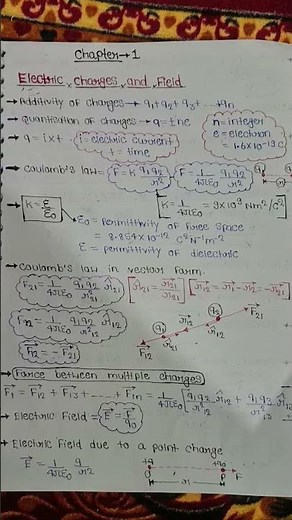 Chapter→1
Electric Charges and Field
→ Additivity of charges → q₁+q₂+q₃+ ....+qₙ
→ Quantisation of charges → q=±ne
n = integer
e = electron
= 1.6×10⁻¹⁹C
→ q = i×t
i = electric current
t = time
→ Coulamb's law = F = K q₁q₂/r²
F = 1/4πε₀ q₁q₂/r²
→ K = ε/ε₀
K = 1/4πε₀ = 9×10⁹ Nm²/C²
ε₀ = Permittivity of free space
= 8.854×10⁻¹² C²N⁻¹m⁻²
ε = permittivity of dielectric
→ Coulamb's law in vector form.
F₂₁ = 1/4πε₀ q₁q₂/r²₂₁ r̂₂₁
F₁₂ = 1/4πε₀ q₁q₂/r²₁₂ r̂₁₂
F⃗₁₂ = -F⃗₂₁
q₁
q₂
F⃗₂₁
F⃗₁₂
→ Force between multiple charges
F⃗₁ = F⃗₁₂ + F⃗₁₃+.....+F⃗₁ₙ = 1/4πε₀ [q₁q₂/r²₁₂ r̂₁₂ + q₁q₃/r²₁₃ r̂₁₃
→ Electric Field = E⃗ = F⃗/q₀
→ Electric Field due to a point change
E⃗ = 1/4πε₀ q/r²
+q
+q₀
O
P
F
r